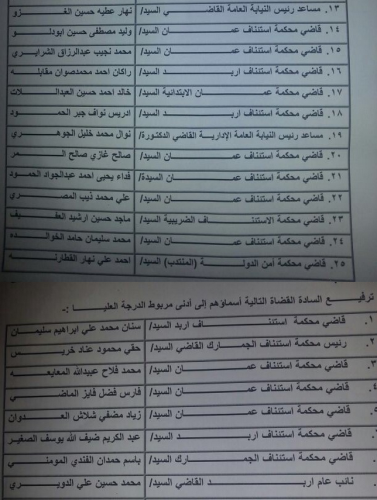 ١٣. مساعد رئيس النيابة العامة القاضي السيد/ نهار عطيه حسين الغزو
١٤. قاضي محكمة استئناف عمان السيد/ وليد مصطفى حسين ابودلو
١٥. قاضي محكمة استئناف عمان السيد/ محمد نجيب عبدالرزاق الشرايري
١٦. قاضي محكمة استئناف اربد السيد/ راكان احمد محمدصوان مقابله
١٧. قاضي محكمة عمان الابتدائية السيد/ خالد احمد حسين العبداللات
١٨. قاضي محكمة استئناف اربد السيد/ ادريس نواف جبر الحمود
١٩. مساعد رئيس النيابة العامة الإدارية القاضي الدكتورة/ نوال محمد خليل الجوهري
٢٠. قاضي محكمة استئناف عمان السيد/ صالح غازي صالح العمر
٢١. قاضي محكمة استئناف عمان السيدة/ فداء يحيى احمد عبدالجواد الحمود
٢٢. قاضي محكمة استئناف عمان السيد/ علي محمد ذيب المصري
٢٣. قاضي محكمة الاستئناف الضريبية السيد/ ماجد حسين ارشيد العفيف
٢٤. قاضي محكمة استئناف عمان السيد/ محمد سليمان حامد الخوالده
٢٥. قاضي محكمة أمن الدولة (المنتدب) السيد/ احمد علي نهار القطارنه
ترفيع السادة القضاة التالية أسماؤهم إلى أدنى مربوط الدرجة العليا :-
١. قاضي محكمة استئناف اربد السيد/ سنان محمد علي ابراهيم سليمان
٢. رئيس محكمة استئناف الجمارك القاضي السيد/ حقي محمود عناد خريس
٣. قاضي محكمة استئناف عمان السيد/ محمد فلاح عبيدالله المعايعه
٤. قاضي محكمة استئناف عمان السيد/ فارس فضل فايز الماضي
٥. قاضي محكمة استئناف عمان السيد/ زياد مضفي شلاش العدوان
٦. قاضي محكمة استئناف اربد السيد/ عبد الكريم ضيف الله يوسف الصغير
٧. قاضي محكمة استئناف الجمارك السيد/ باسم حمدان الفندي المومني
٨. نائب عام اربد القاضي السيد/ محمد حسين علي الدويري